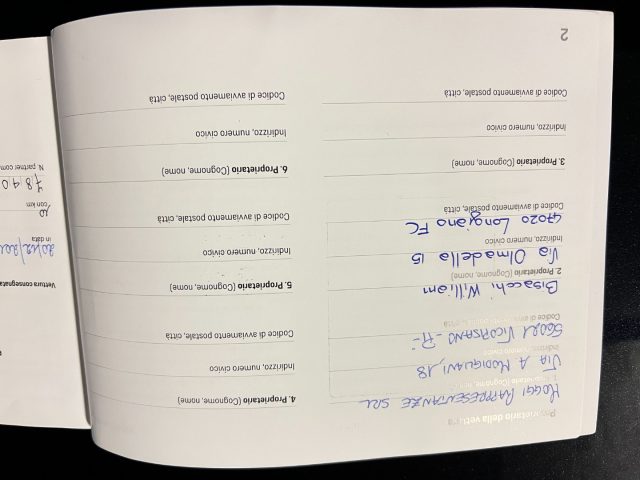 Proprietario della vettura
MOGGI RAPPRESENTANZE SRL
1. Proprietario (Cognome, nome)
VIA A MODIGLIANI, 18
Indirizzo, numero civico
VICOPISANO - Pi -
Codice di avviamento postale, città
Bisacchi William
2. Proprietario (Cognome, nome)
Via Olmadella 15
Indirizzo, numero civico
47020 Longiano FC
Codice di avviamento postale, città
3. Proprietario (Cognome, nome)
Indirizzo, numero civico
Codice di avviamento postale, città
2
4. Proprietario (Cognome, nome)
Indirizzo, numero civico
Codice di avviamento postale, città
5. Proprietario (Cognome, nome)
Indirizzo, numero civico
Codice di avviamento postale, città
6. Proprietario (Cognome, nome)
Indirizzo, numero civico
Codice di avviamento postale, città
Vettura consegnata
20/12/201
in data
10
con km
7840
N. partner com